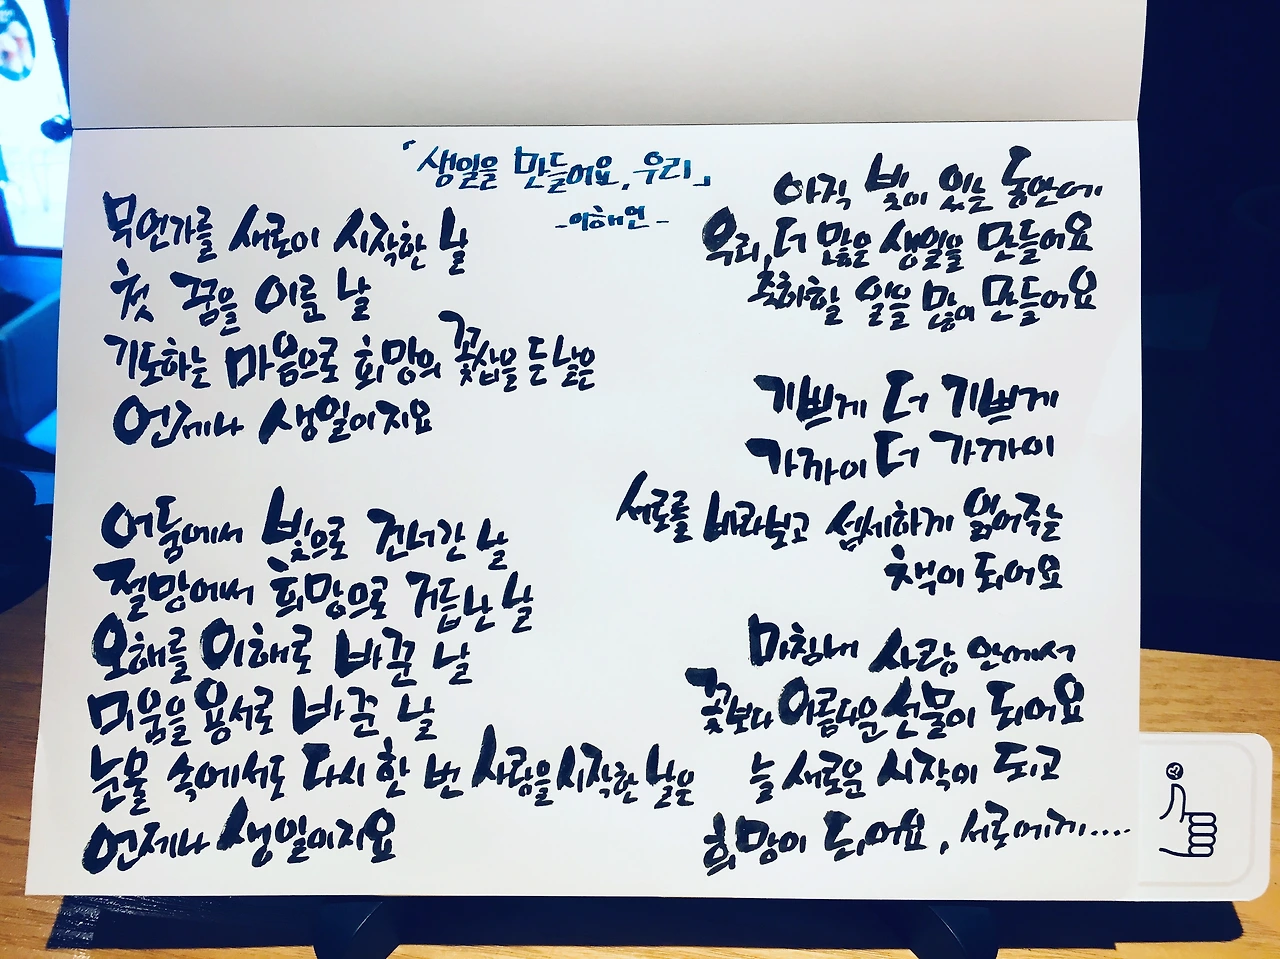 「생일을 만들어요, 우리」
-이해인-
무언가를 새로이 시작한 날
첫 꿈을 이룬 날
기도하는 마음으로 희망의 꽃삽을 든 날은
언제나 생일이지요
어둠에서 빛으로 건너간 날
절망에서 희망으로 거듭난 날
오해를 이해로 바꾼 날
미움을 용서로 바꾼 날
눈물 속에서도 다시 한 번 사랑을 시작한 날은
언제나 생일이지요
아직 빛이 있는 동안에
우리, 더 많은 생일을 만들어요
축하할 일을 많이 만들어요
기쁘게 더 기쁘게
가까이 더 가까이
서로를 바라보고 섬세하게 읽어주는
책이 되어요
마침내 사랑 안에서
꽃보다 아름다운 선물이 되어요
늘 새로운 시작이 되고
희망이 되어요, 서로에게....